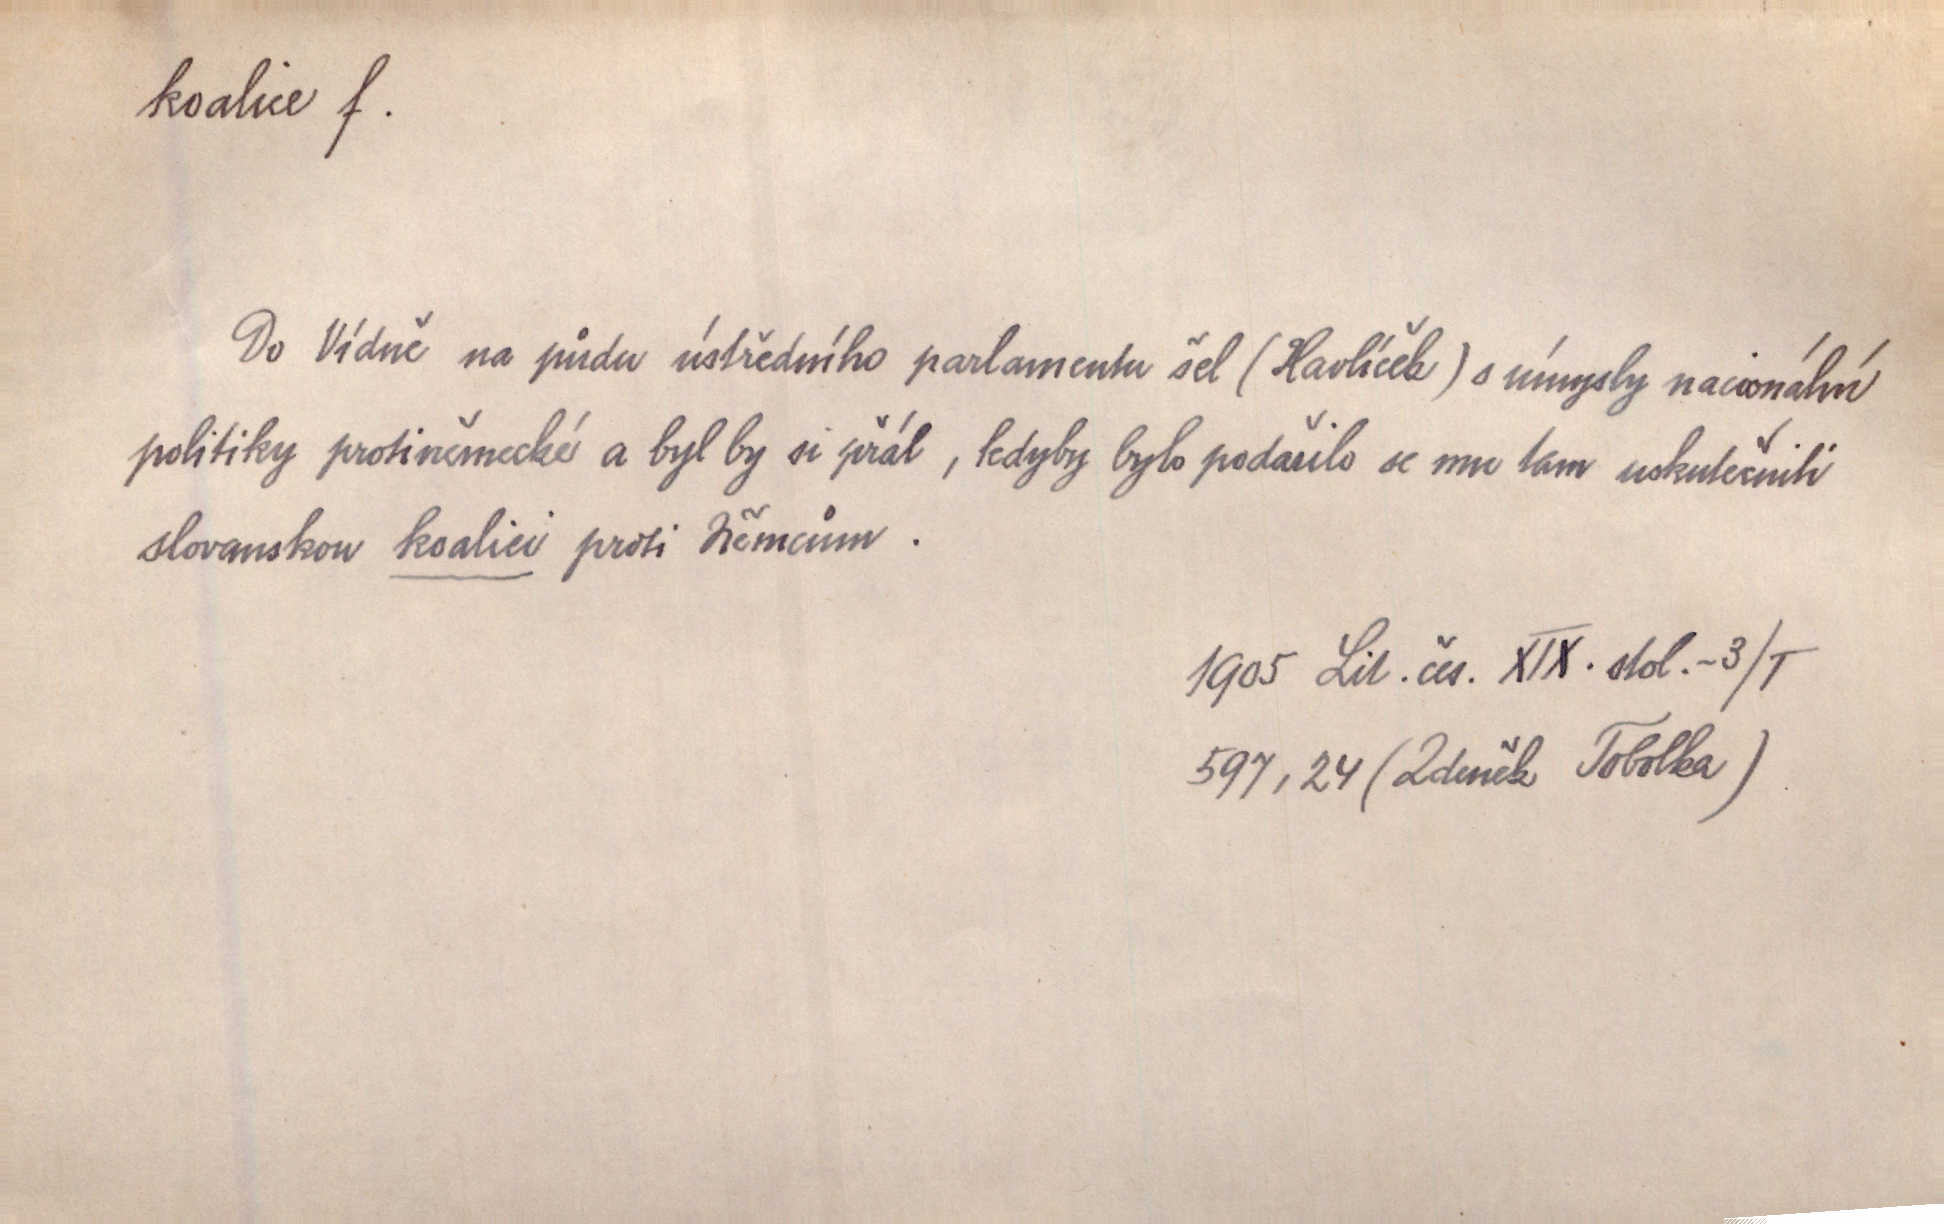 koalice f.
Do Vídně na půdu ústředního parlamentu šel (Havlíček) s úmysly nacionální
politiky protiněmecké a byl by si přál, kdyby bylo podařilo se mu tam uskutečniti
slovanskou koalici proti Němcům.
1905 Lit. čes. XIX. stol. - 3/T
597, 24 (Zdeněk Tobolka)